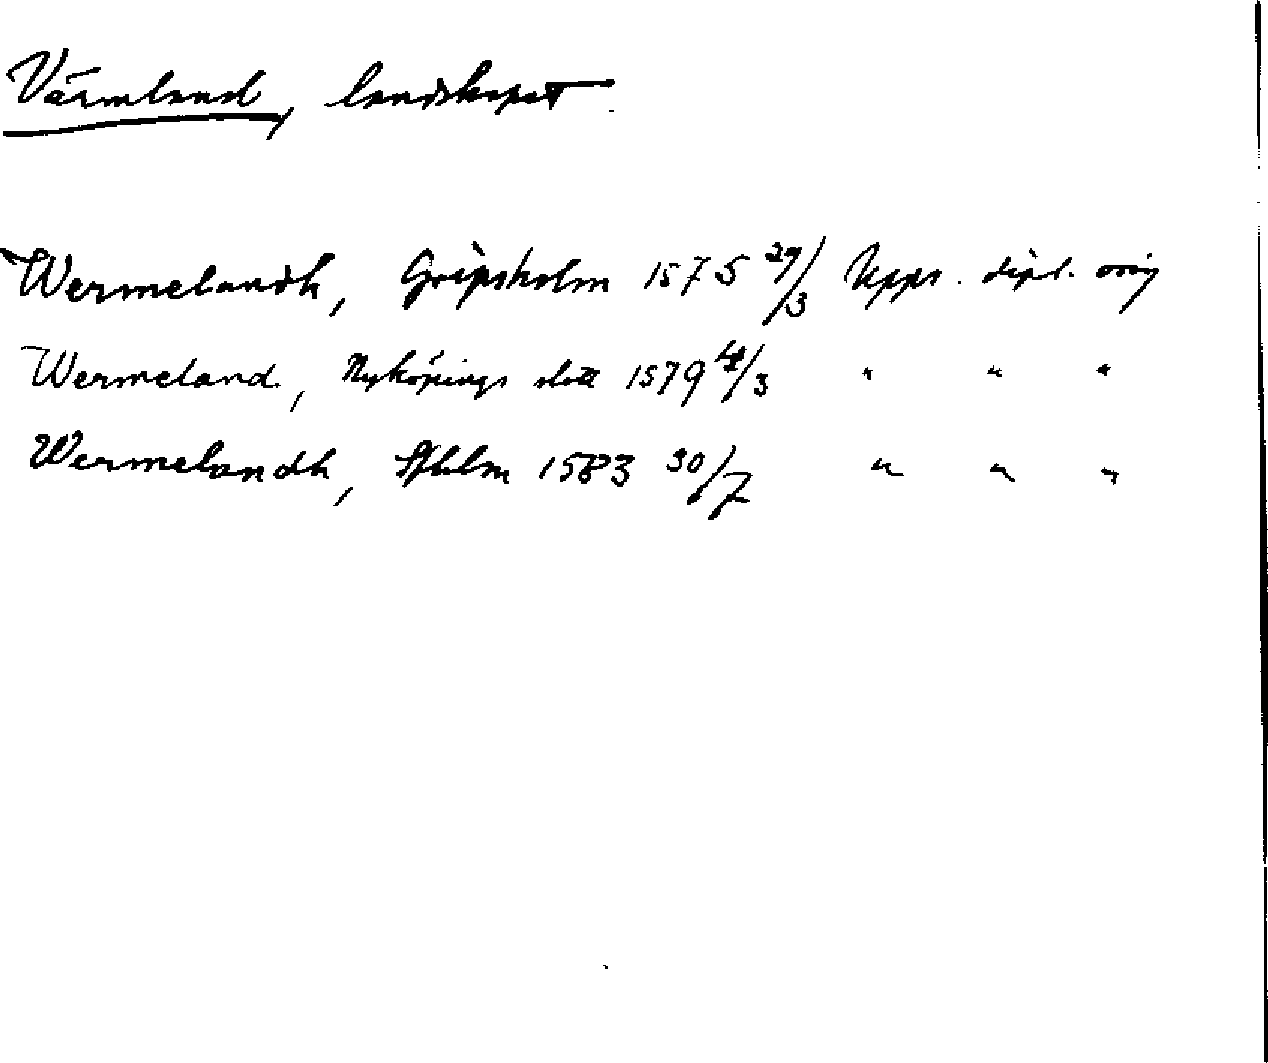 Värmland, landskapet
Wermelandh, Gripsholm 1575 29/3 Upps. dipl. orig
Wermeland, Nyköpings slott 1579 /3 " " "
Wermelandh, Sthlm 1583 30/7 " " "